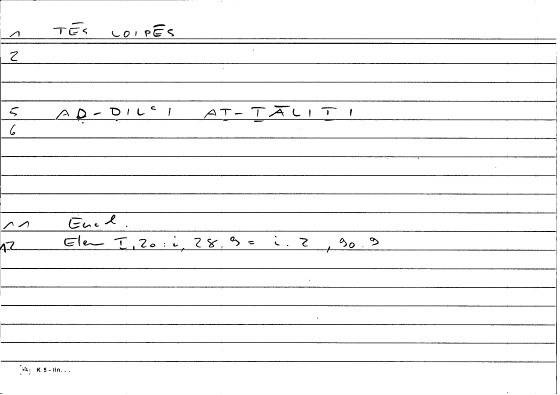 1 TĒS LOIPĒS
2
5 AḌ-ḌILʿI AṮ-ṮĀLIṮI
6
11 Eucl.
12 Elem I, 20 : i, 28.9 = i. 2, 90.9
K 5 - lin...